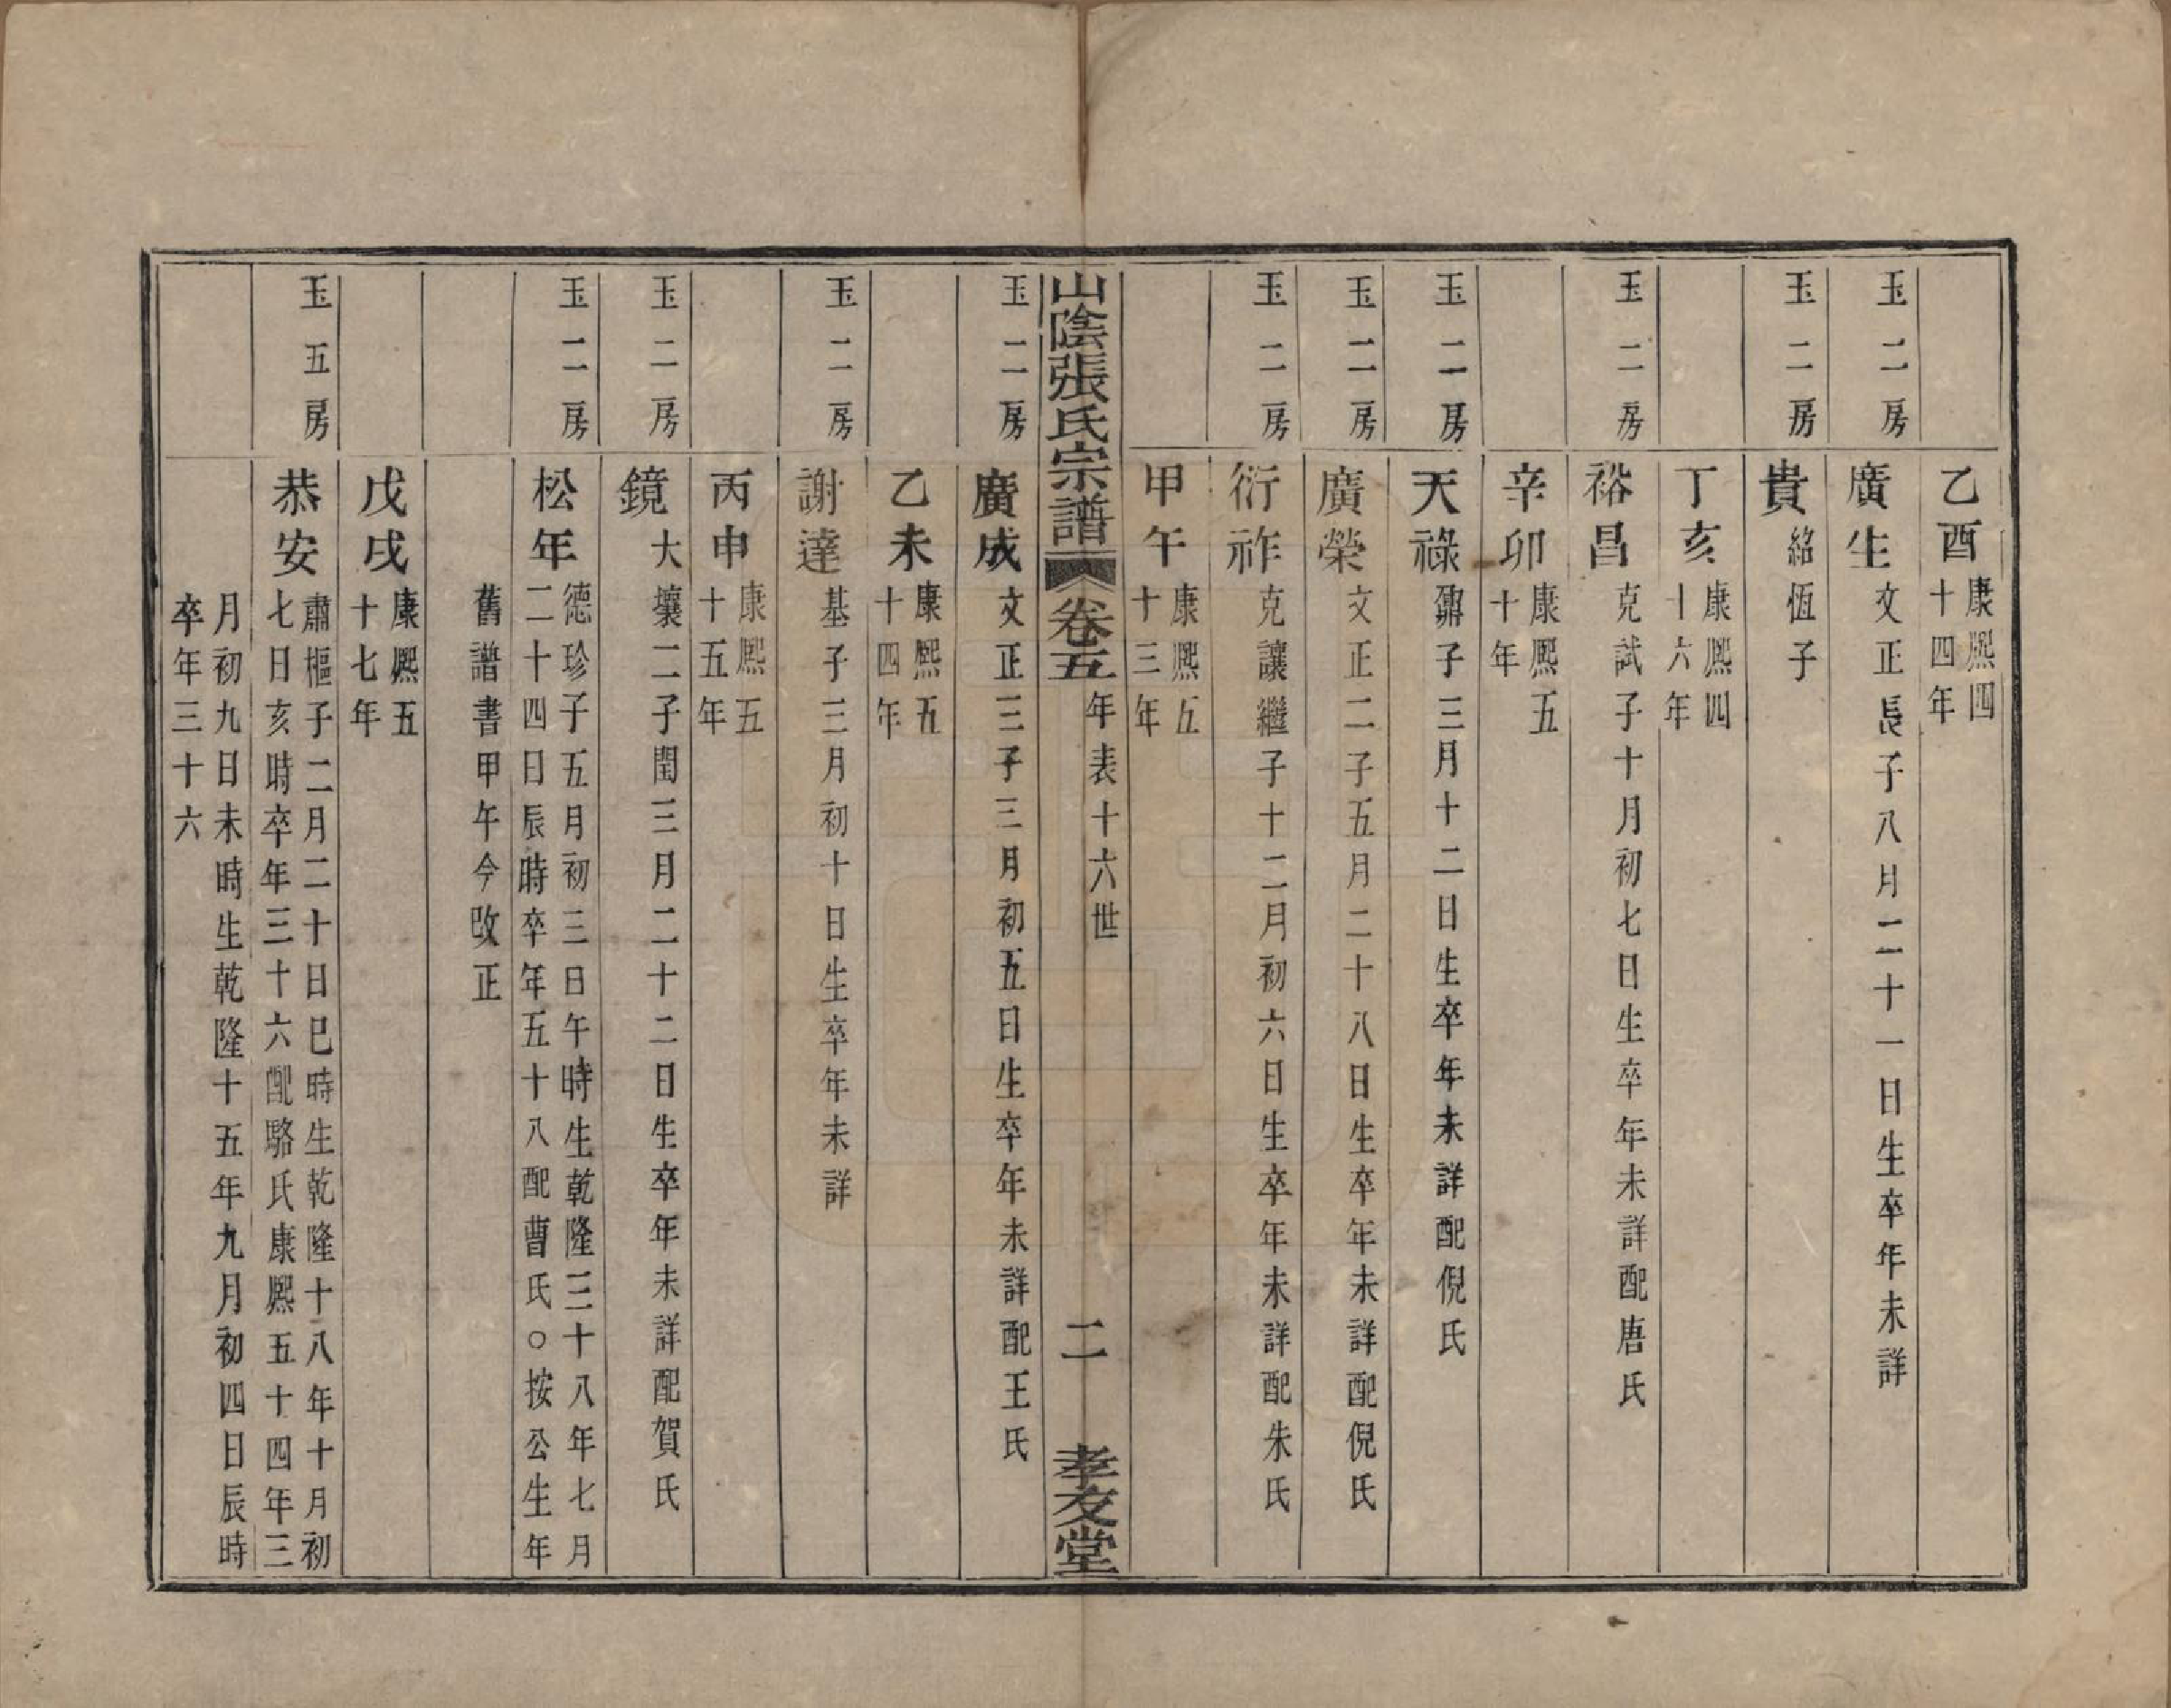 乙酉康熙四十四年
玉二房　廣生　文正長子八月二十一日生卒年未詳
玉二房　貴　紹恆子
丁亥康熙四十六年
玉二房　裕昌　克試子十月初七日生卒年未詳配唐氏
辛卯康熙五十年
玉二房　天祿　鼐子三月十二日生卒年未詳配倪氏
玉二房　廣榮　文正二子五月二十八日生卒年未詳配倪氏
玉二房　衍祚　克讓繼子十二月初六日生卒年未詳配朱氏
甲午康熙五十三年
山陰張氏宗譜　卷五　年表十六世　二　孝友堂
玉二房　廣成　文正三子三月初五日生卒年未詳配王氏
乙未康熙五十四年
玉二房　謝達　基子三月初十日生卒年未詳
丙申康熙五十五年
玉二房　鏡　大壤二子閏三月二十二日生卒年未詳配賀氏
玉二房　松年　德珍子五月初三日午時生乾隆三十八年七月
二十四日辰時卒年五十八配曹氏○按公生年
舊譜書甲午今改正
戊戌康熙五十七年
玉五房　恭安　肅樞子二月二十日巳時生乾隆十八年十月初
七日亥時卒年三十六配駱氏康熙五十四年三
月初九日未時生乾隆十五年九月初四日辰時
卒年三十六